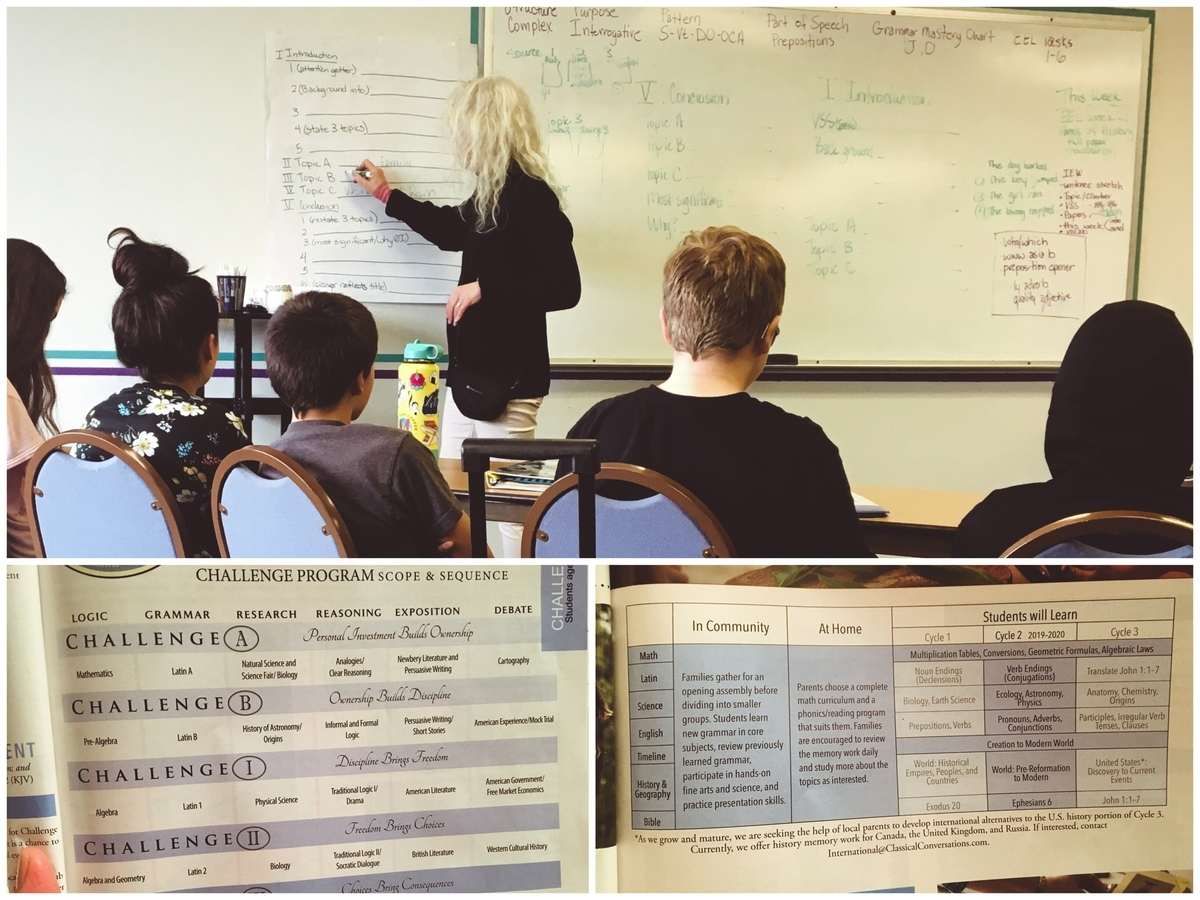 Structure Purpose Pattern Part of Speech Grammar Mastery Chart EEL Tasks
Complex Interrogative S-Vt-DO-OCA Prepositions J, O 1-6
I Introduction
1 (attention getter)
2 (Background info)
3
4 (state 3 topics)
5
II Topic A
III Topic B
IV Topic C
V Conclusion
1 (restate 3 topics)
2
3 (most significant/why?)
4
5
6 (closer reflects title)
Source 1 2 3
Topic 3
V Conclusion
Topic A
Topic B
Topic C
Most significant
Why?
I Introduction
VSS
Background
Topic A
Topic B
Topic C
This week
The dog barked
The key jumped
The girl ran
IEW
• sentence stretch
• Topic/clincher
• VSS
• Papers
• this week
• vocab
who/which
www.asia.b
preposition opener
-ly adverb
quality adjective
CHALLENGE PROGRAM SCOPE & SEQUENCE
CHALLE
Students ag
LOGIC GRAMMAR RESEARCH REASONING EXPOSITION DEBATE
CHALLENGE A Personal Investment Builds Ownership
Mathematics Latin A Natural Science and Science Fair/ Biology Analogies/ Clear Reasoning Newbery Literature and Persuasive Writing Cartography
CHALLENGE B Ownership Builds Discipline
Pre-Algebra Latin B History of Astronomy/ Origins Informal and Formal Logic Persuasive Writing/ Short Stories American Experience/Mock Trial
CHALLENGE I Discipline Brings Freedom
Algebra Latin 1 Physical Science Traditional Logic I/ Drama American Literature American Government/ Free Market Economics
CHALLENGE II Freedom Brings Choices
Algebra and Geometry Latin 2 Biology Traditional Logic II/ Socratic Dialogue British Literature Western Cultural History
Choices Bring Consequences
ENT
; and
(KJV)
for Challenge
t is a chance to
In Community
At Home
Students will Learn
Cycle 1 Cycle 2 2019-2020 Cycle 3
Math
Latin
Science
English
Timeline
History &
Geography
Bible
Families gather for an
opening assembly before
dividing into smaller
groups. Students learn
new grammar in core
subjects, review previously
learned grammar,
participate in hands-on
fine arts and science, and
practice presentation skills.
Parents choose a complete
math curriculum and a
phonics/reading program
that suits them. Families
are encouraged to review
the memory work daily
and study more about the
topics as interested.
Multiplication Tables, Conversions, Geometric Formulas, Algebraic Laws
Noun Endings (Declensions) Verb Endings (Conjugations) Translate John 1:1-7
Biology, Earth Science Ecology, Astronomy, Physics Anatomy, Chemistry, Origins
Prepositions, Verbs Pronouns, Adverbs, Conjunctions Participles, Irregular Verb Tenses, Clauses
Creation to Modern World
World: Historical Empires, Peoples, and Countries World: Pre-Reformation to Modern United States*: Discovery to Current Events
Exodus 20 Ephesians 6 John 1:1-7
*As we grow and mature, we are seeking the help of local parents to develop international alternatives to the U.S. history portion of Cycle 3.
Currently, we offer history memory work for Canada, the United Kingdom, and Russia. If interested, contact
International@ClassicalConversations.com.